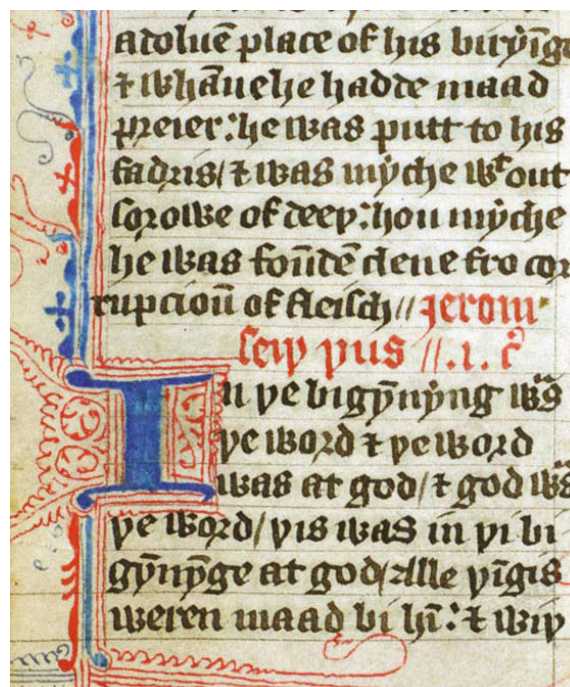 a doluē place of his biryīge
⁊ whāne he hadde maad
preier: he was putt to his
fadris/ ⁊ was myche wᵗout
sorowe of deeþ: hou myche
he was foūdē clene fro cor
rupcioū of fleisch// Jerom
seiþ þus //.i. cᵒ
In þe bigȳnyng was
þe word ⁊ þe word
was at god/ ⁊ god was
þe word/ þis was in þi bi
gȳnȳge at god/ Alle þīgis
weren maad bi hī: ⁊ wiþ